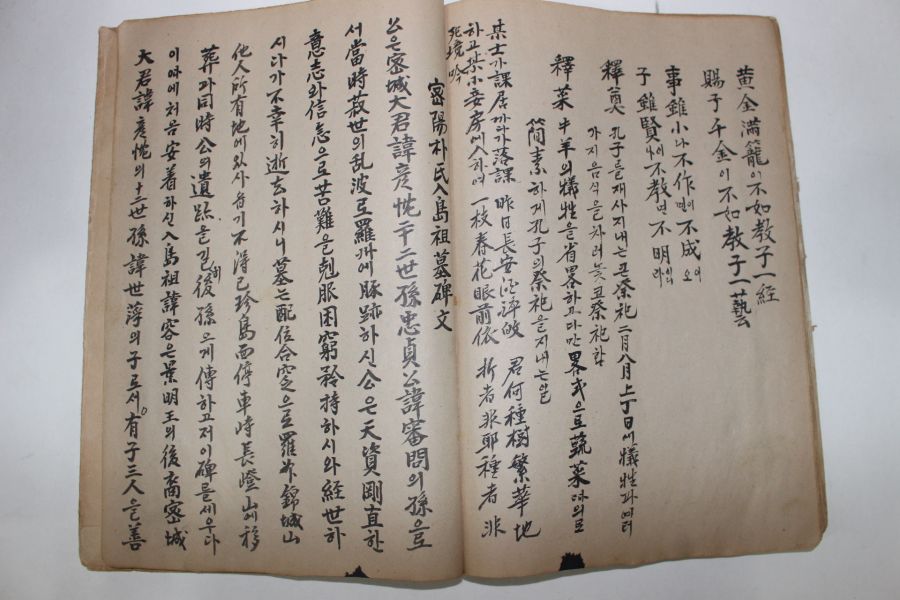 黄金滿籠이不如教子一経
賜子千金이不如教子一藝
事雖小나不作이면不成이오
子雖賢이나不教면不明이니라
釋奠 孔子를재사지내는큰祭祀二月八月上丁日에犠牲과여러
가지음식을차려놋코祭祀함
釋菜 牛羊의犠牲을省畧하고다만畧式으로蔬菜따위로
簡素하게孔子의祭祀을지내는일
某士가課居하다落課 昨日長安 君何種樹繁華地
하고某小妾房에入하여 一枝春花眼前依 折者非耶種者非
死境吟
密陽朴氏入島祖墓碑文
公은密城大君諱彦忱二十二世孫忠貞公諱審問의孫으로
서當時 世의乱波로羅州에脉跡하신公은天資剛直한
意志와信志으로苦難을剋服困窮矜持하시와経世하
시다가不幸히逝去하시니墓는配位合窆으로羅州錦城山
他人所有地에있사읍기不得已珍島面停車峙長燈山에移
葬과同時公의遺跡을길히後孫으게傳하고저이碑를세우다
이따에처음安着하신入島祖諱容은景明王의後裔密城
大君諱彦忱의十二世孫諱世薄의子로서有子三人을善